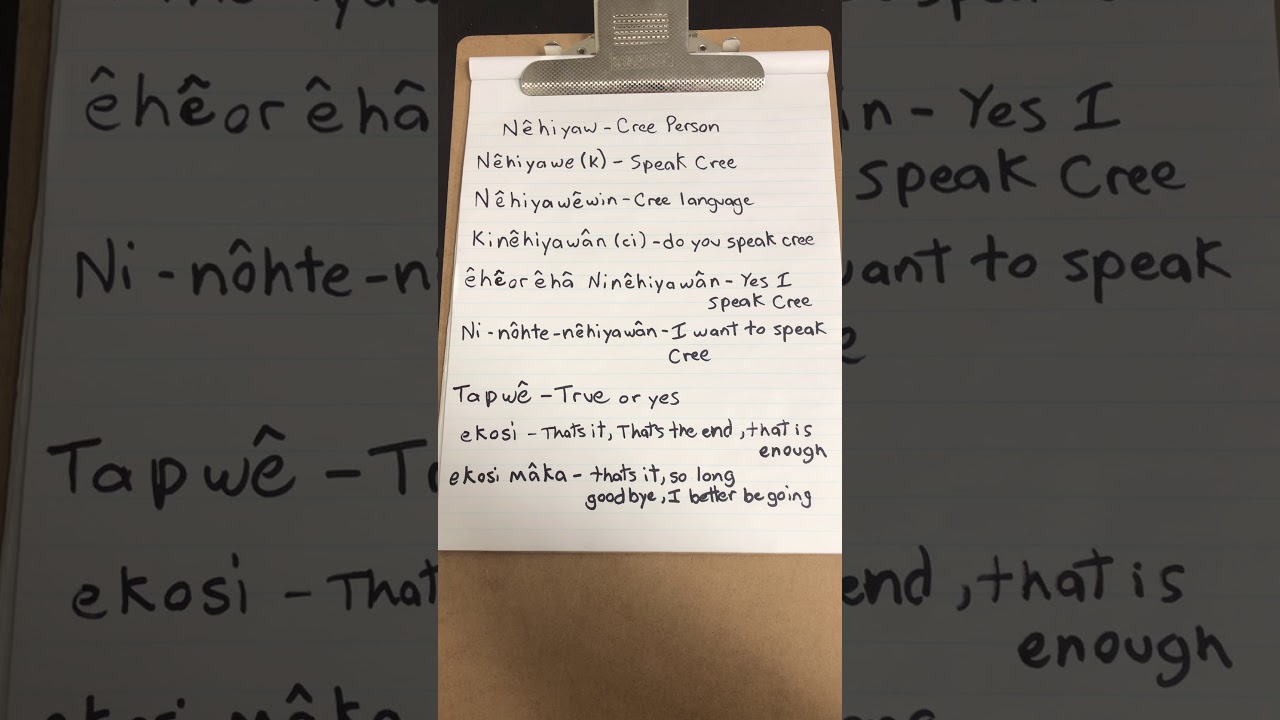 Nêhiyaw - Cree Person
Nêhiyawe (k) - Speak Cree
Nêhiyawêwin - Cree language
Kinêhiyawân (ci) - do you speak cree
êhê or êhâ Ninêhiyawân - Yes I
speak Cree
Ni - nôhte - nêhiyawân - I want to speak
Cree
Tapwê - True or yes
ekosi - Thats it, That's the end, that is
enough
ekosi mâka - thats it, so long
goodbye, I better be going